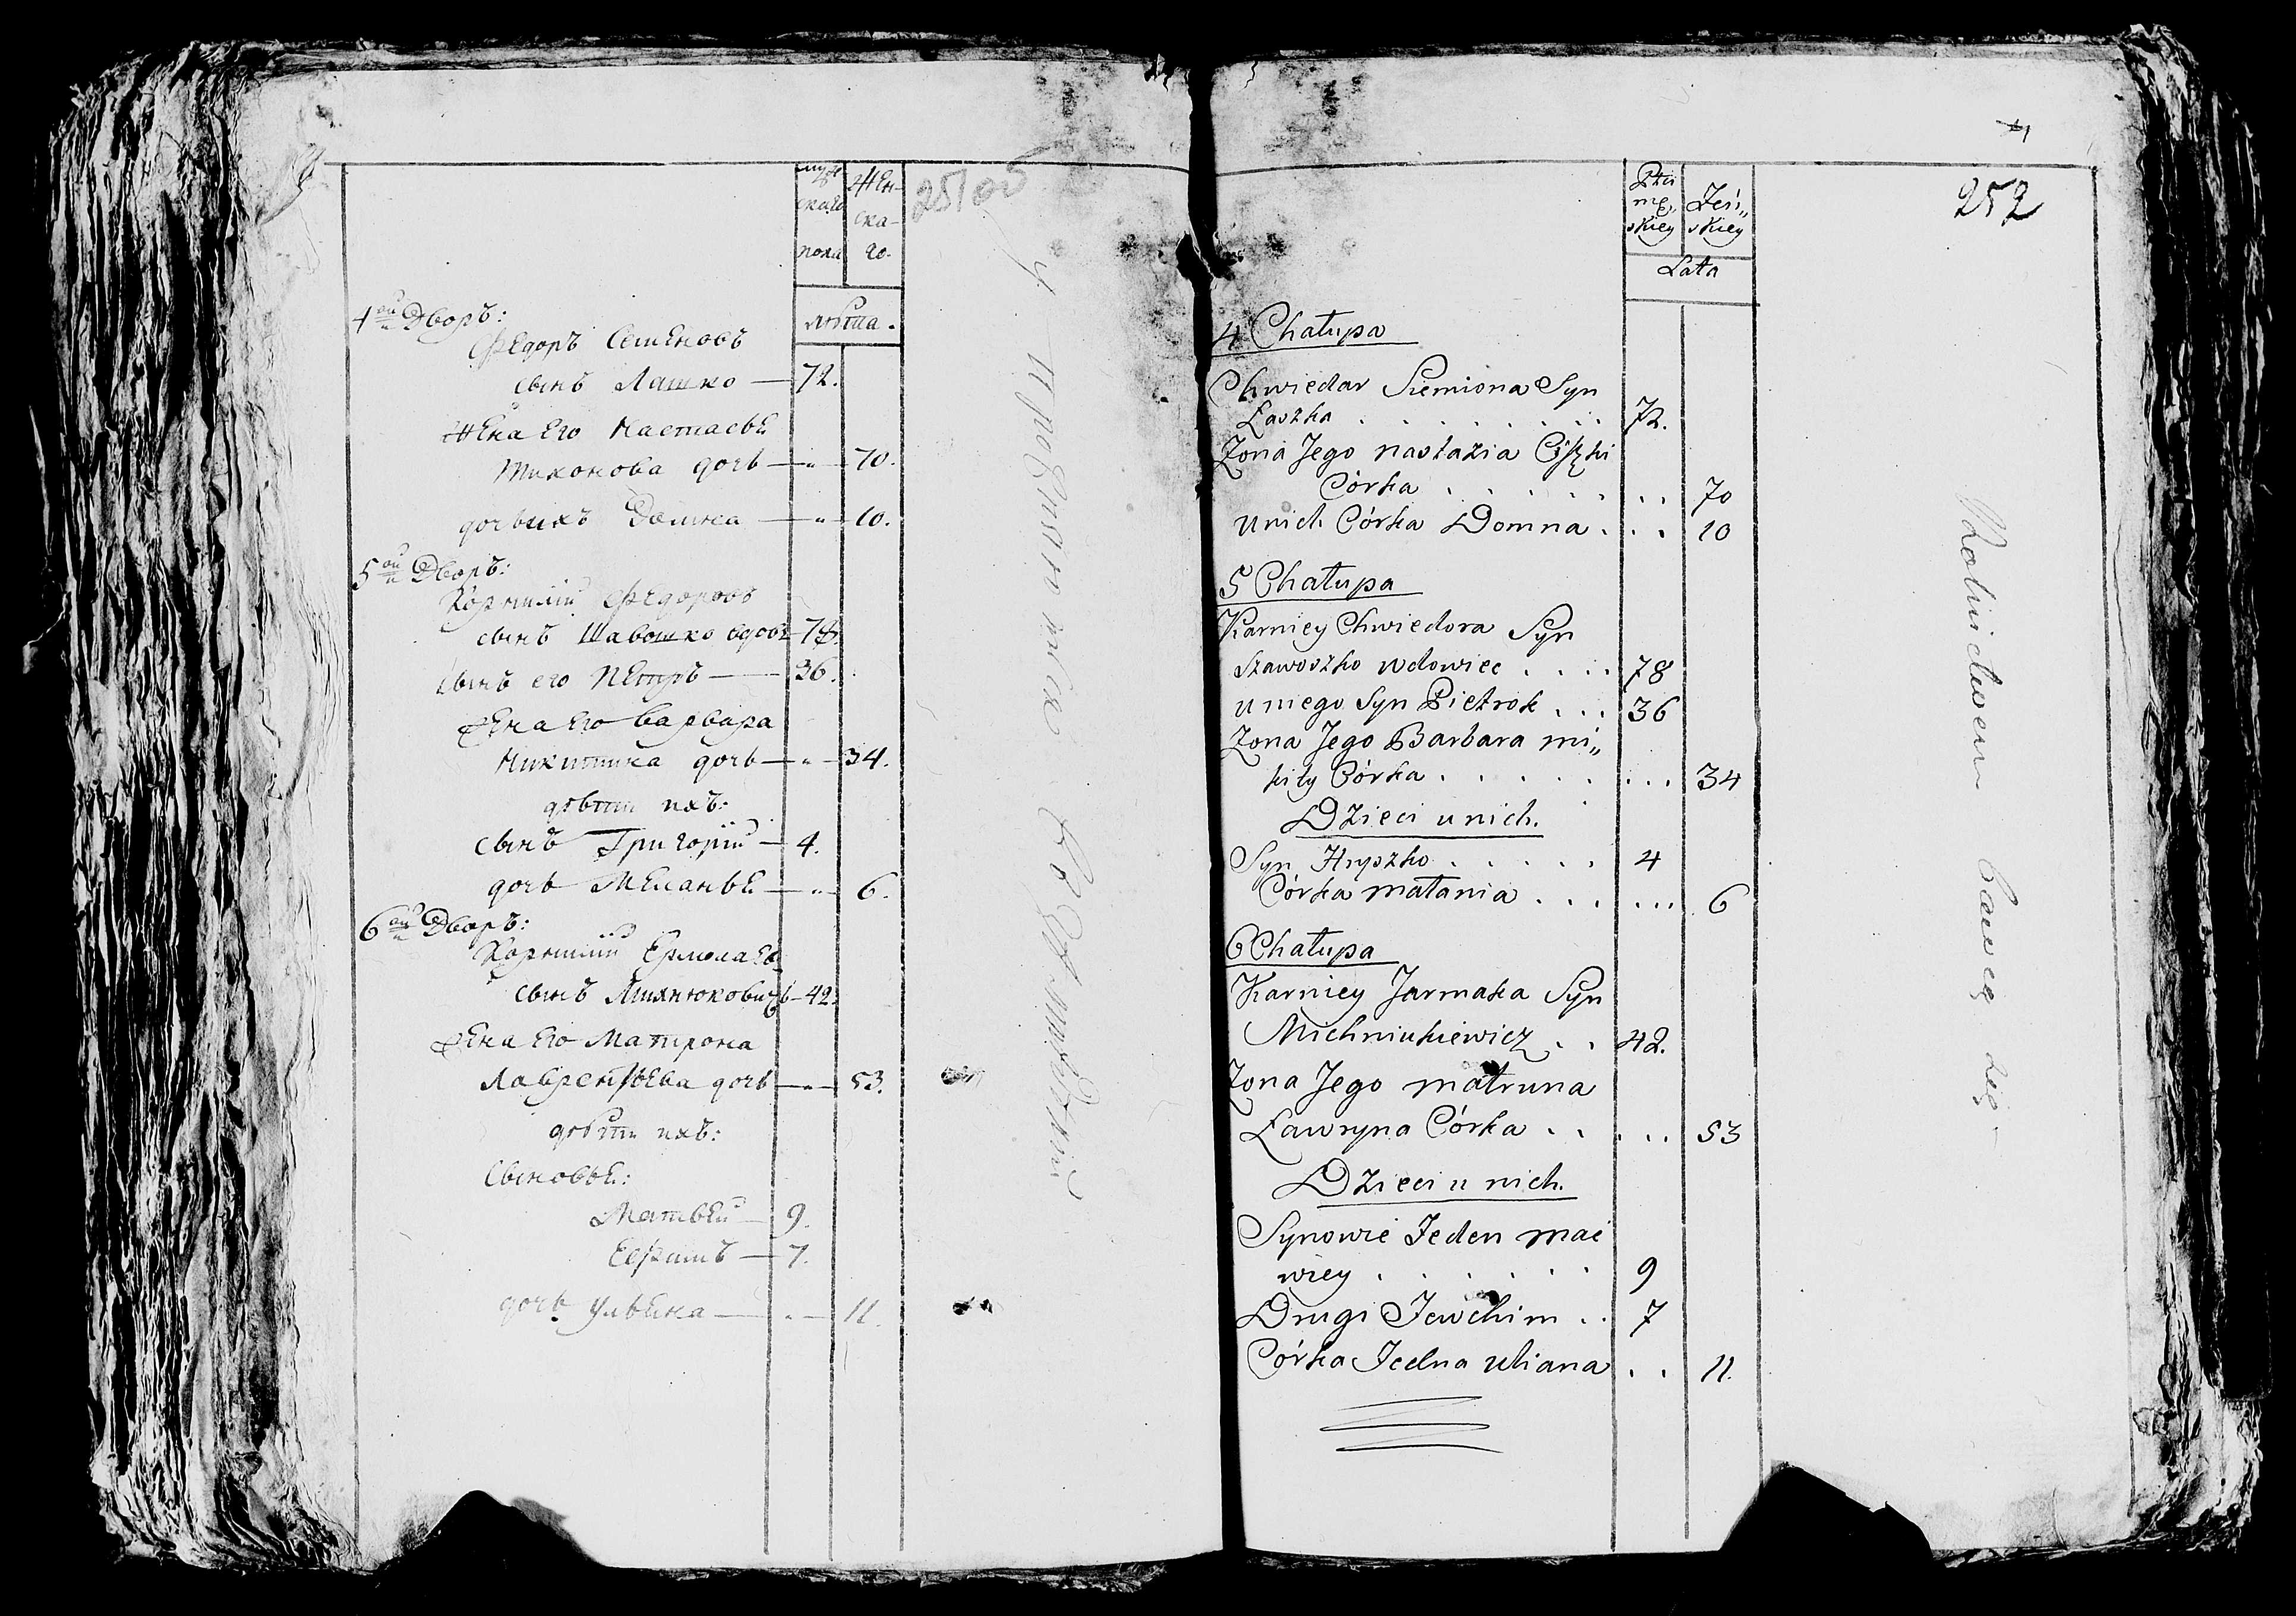 25100
муж
скаго
пола
Жен-
ска-
го.
лѣта.
4ой Дворъ:
Федоръ Семеновъ
сынъ Лашко — 72.
Жена Его Настасья
Тихонова дочь — „ — 70.
дочь ихъ Домна — „ — 10.
5ой Дворъ:
Корнилій Федоровъ
сынъ Шавошко вдовъ — 78.
сынъ его Петръ — 36.
Жена Его Варвара
Никитина дочь — „ — 34.
дѣти ихъ:
сынъ Григорій — 4.
дочь Меланья — „ — 6.
6ой Дворъ:
Корнилій Ермолаевъ
сынъ Михнюковичъ — 42.
Жена Его Матрона
Лаврентьева дочь — „ — 53.
дѣти ихъ:
Сыновья:
Матвей — 9.
Ефимъ — 7.
дочь Ульяна — „ — 11.
4
252
Płci
mę,
skiey
Żeń„
skiey
Lata
4 Chałupa
Chwiedar Siemiona Syn
Łaszko . . . . . . . . 72.
Zona Jego nastazia Ciszki
Córka . . . . . . . 70
u nich Córka Domna . . . 10
5 Chałupa
Karniey Chwiedora Syn
Szawoszko wdowiec . . . . 78
u niego Syn Pietrok . . . 36
Zona Jego Barbara mi„
kity Córka . . . . . . . . 34
Dzieci u nich.
Syn Hryszko . . . . . 4
Córka małania . . . . . . 6
6 Chałupa
Karniey Jarmaka Syn
Michniukiewicz . . 42.
Zona Jego matruna
Ławryna Córka . . . . . 53
Dzieci u nich.
Synowie Jeden mać
wiey . . . . . . 9
Drugi Jewchim . . 7
Córka Jedna uliana . . 11.